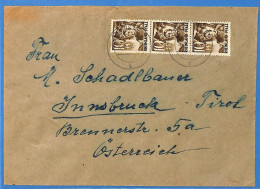 Frau
M. Schadlbauer
Innsbruck - Tirol
Brennerstr. 5a
Österreich